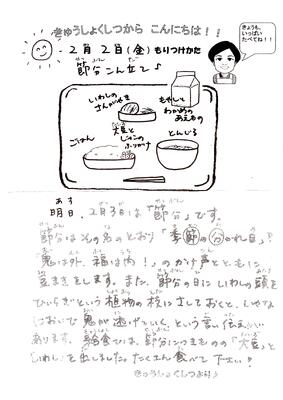 きゅうしょくしつから こんにちは！！
きょうも、
いっぱい
たべてね！！
2月2日(金) もりつけかた
節分こんだて♪
いわしの
さんがやき
もやしと
わかめの
あえもの
ごはん
大豆と
じゃこの
ふりかけ
とんじる
明日、2月3日は「節分」です。
節分はその名のとおり「季節の分かれ目」?
「鬼は外、福は内！」のかけ声とともに
豆まきをします。また、節分の日にいわしの頭を
ひいらぎという植物の枝にさしておくと、いやな
においで鬼が逃げていく、という言い伝えが
あります。給食では、節分につきものの「大豆」と
「いわし」を出しました。たくさん食べて下さい！
きゅうしょくしつより♪